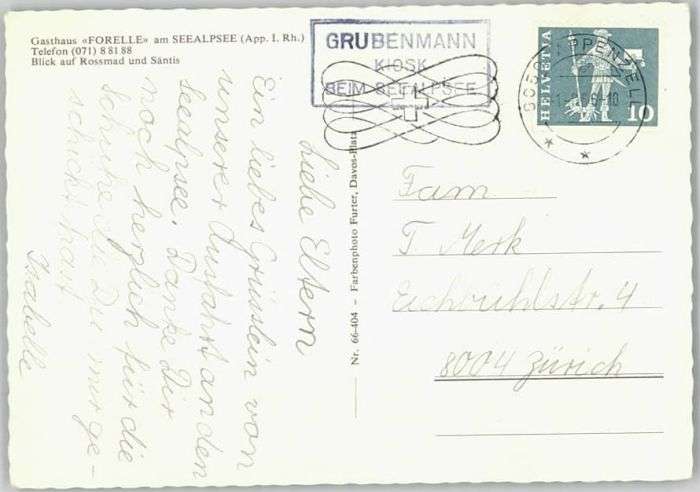 Gasthaus «FORELLE» am SEEALPSEE (App. I. Rh.)
Telefon (071) 8 81 88
Blick auf Rossmad und Säntis
GRUBENMANN
KIOSK
BEIM SEEALPSEE
HELVETIA
10
9050 APPENZELL
Nr. 66-404 — Farbenphoto Furter, Davos-Platz
Liebe Eltern
Ein liebes Grüsslein von
unserer Ausfahrt an den
Seealpsee. Danke Dir
noch herzlich für die
Schuhe die Du mir ge-
schickt hast
Isabelle
Fam
T Merk
Eichbühlstr. 4
8004 Zürich